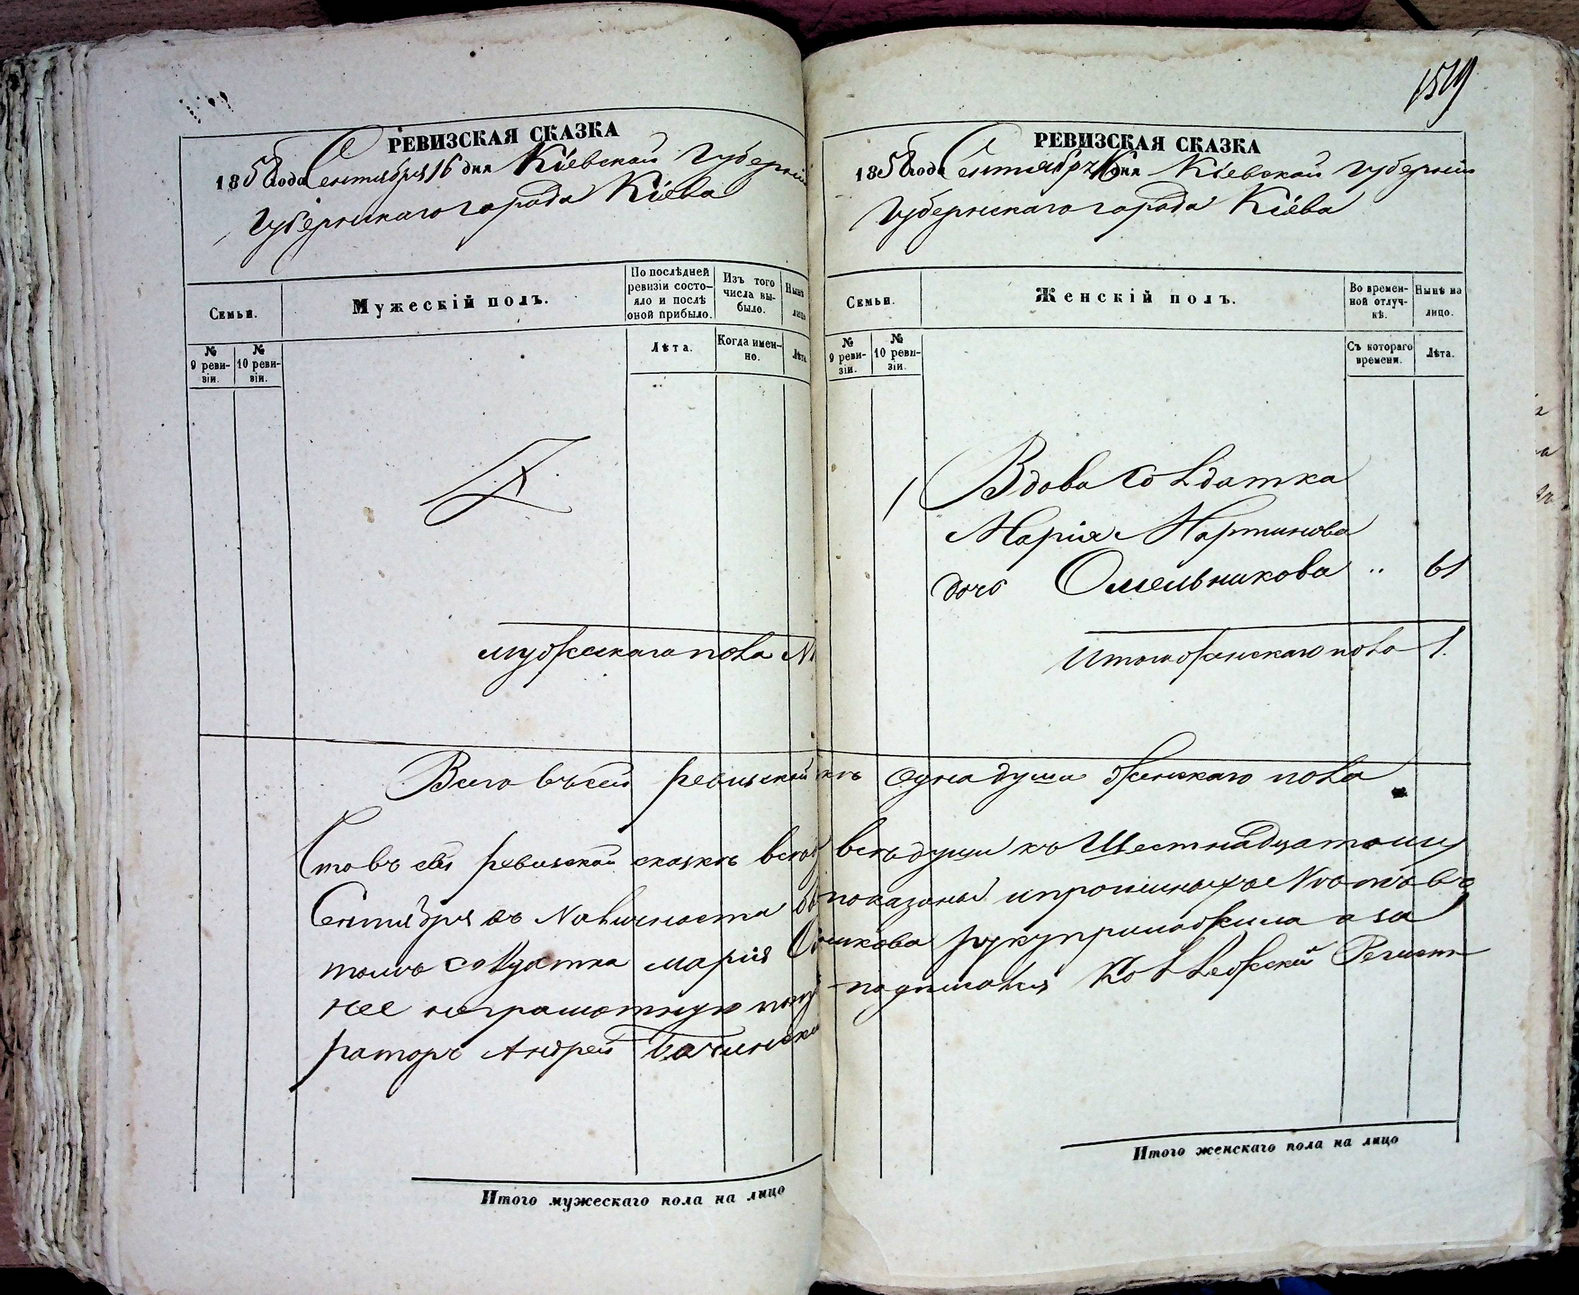 РЕВИЗСКАЯ СКАЗКА
1858 года Сентября 16 дня Кіевской Губерніи
Губернскаго города Кіева
Семьи.
Мужескій полъ.
По послѣдней ревизіи состо-яло и послѣ оной прибыло.
Изъ того числа вы-было.
Нынѣ
лицо
№ 9 реви-зіи.
№ 10 реви-зіи.
Лѣта.
Когда имен-но.
Лѣта
мужескаго пола
Итого мужескаго пола на лицо
1519
РЕВИЗСКАЯ СКАЗКА
1858 года Сентября 16 дня Кіевской Губерніи
Губернскаго города Кіева
Семьи.
Женскій полъ.
Во времен-ной отлуч-кѣ.
Нынѣ на лицо.
№ 9 реви-зіи.
№ 10 реви-зіи.
Съ котораго времени.
Лѣта.
1 Вдова Солдатка
Марія Мартинова
дочь Омельникова " 61
Итого женскаго пола 1.
Всего въ сей ревизской одна душа женскаго пола
Что въ сей ревизской сказкѣ всѣ души къ Шестнадцатому
Сентября въ Наличности показаны и прописныхъ Нѣтъ въ
томъ Солдатка Марія руку приложила а за
нее неграмотную подписался Коллежскій Регист-
раторъ Андрей
Итого женскаго пола на лицо